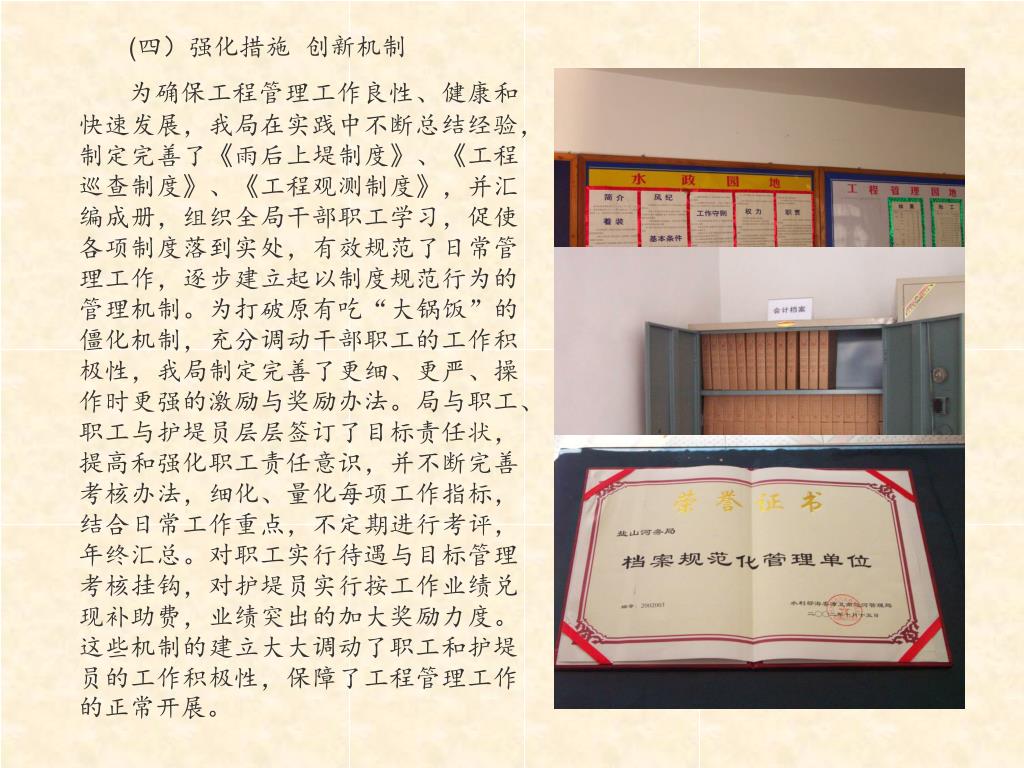 (四）强化措施 创新机制
为确保工程管理工作良性、健康和
快速发展，我局在实践中不断总结经验，
制定完善了《雨后上堤制度》、《工程
巡查制度》、《工程观测制度》，并汇
编成册，组织全局干部职工学习，促使
各项制度落到实处，有效规范了日常管
理工作，逐步建立起以制度规范行为的
管理机制。为打破原有吃“大锅饭”的
僵化机制，充分调动干部职工的工作积
极性，我局制定完善了更细、更严、操
作时更强的激励与奖励办法。局与职工、
职工与护堤员层层签订了目标责任状，
提高和强化职工责任意识，并不断完善
考核办法，细化、量化每项工作指标，
结合日常工作重点，不定期进行考评，
年终汇总。对职工实行待遇与目标管理
考核挂钩，对护堤员实行按工作业绩兑
现补助费，业绩突出的加大奖励力度。
这些机制的建立大大调动了职工和护堤
员的工作积极性，保障了工程管理工作
的正常开展。
水政园地
简介
风纪
着装
工作守则
权力
职责
基本条件
工程管理园地
会计档案
荣誉证书
盐山河务局
档案规范化管理单位
编号：2002003
二〇〇二年十月十五日